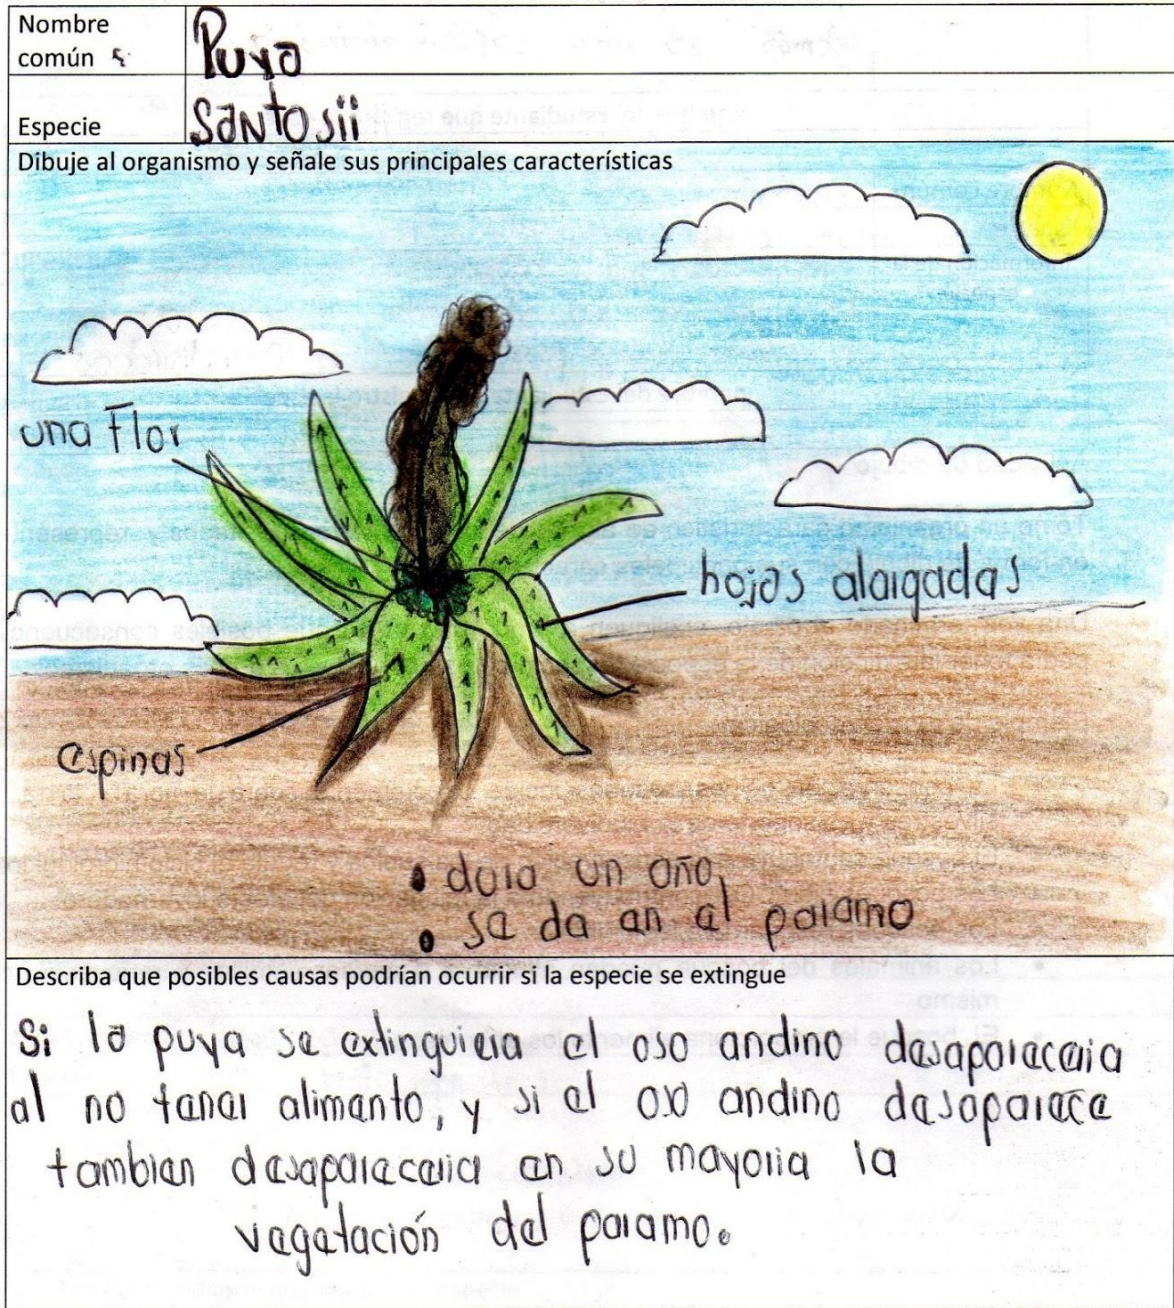 Nombre
común
Puya
Especie
Santosii
Dibuje al organismo y señale sus principales características
una Flor
hojas alargadas
espinas
• dura un año,
• se da en el paramo
Describa que posibles causas podrían ocurrir si la especie se extingue
Si la puya se extinguiera el oso andino desapareceria
al no tener alimento, y si el oso andino desaparece
tambien desapareceria en su mayoria la
vegetación del paramo.